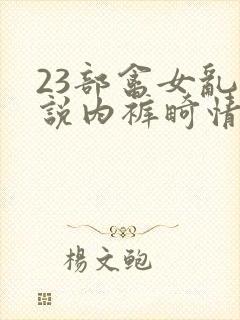 23部畜女乱
說内裤畸情
楊文鲍